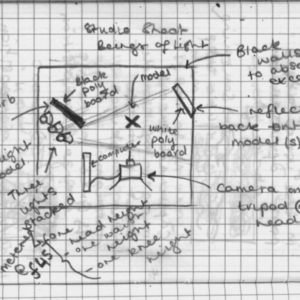 Studio Shoot
Beings of Light
Black
walls
to abso
exce
Black
poly
board
model
reflec
back onto
model(s)
white
poly
board
computer
Camera on
tripod @
head
Three
lights
bracked
one head height
- one waist
height
- one knee
height